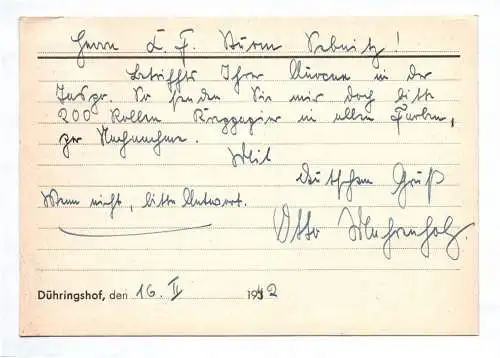 Herrn L. F. Sturm Sebnitz!
Betriffts Ihrer Annonce in der
So senden Sie mir doch bitte
200 Rollen Kreppapier in allen Farben,
per Nachnahme.
Mit
deutschem Gruß
Wenn nicht, bitte Antwort.
Otto Wuhrenholz.
Dühringshof, den 16. II 1942